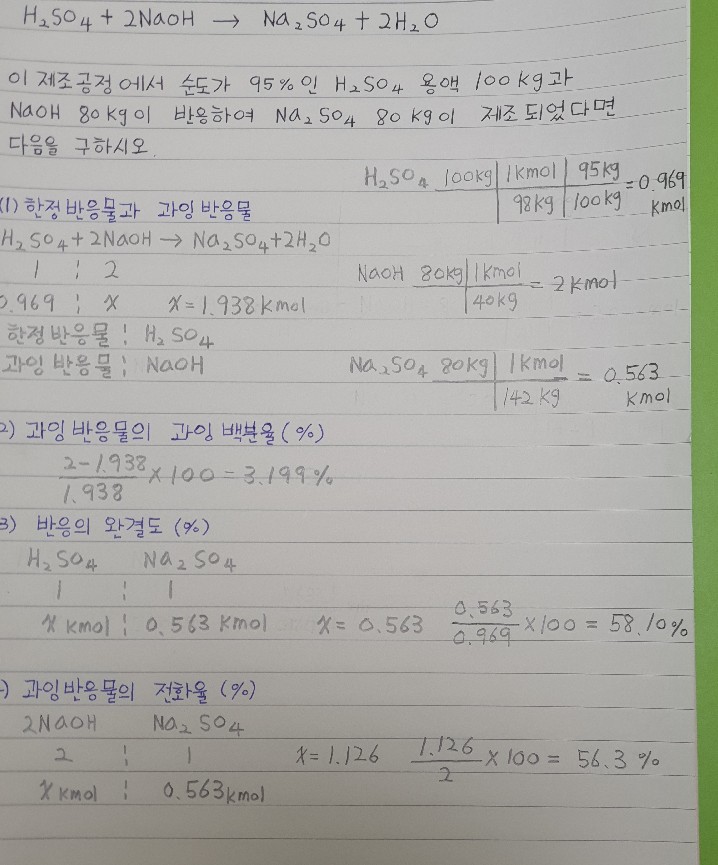 H₂SO₄ + 2NaOH → Na₂SO₄ + 2H₂O
이 제조공정에서 순도가 95%인 H₂SO₄ 용액 100kg과
NaOH 80kg이 반응하여 Na₂SO₄ 80kg이 제조 되었다면
다음을 구하시오.
H₂SO₄ 100kg | 1kmol | 95kg = 0.969
98kg | 100kg kmol
(1) 한정반응물과 과잉반응물
H₂SO₄ + 2NaOH → Na₂SO₄ + 2H₂O
1 : 2
NaOH 80kg | 1kmol = 2kmol
40kg
0.969 : x x = 1.938kmol
한정반응물 : H₂SO₄
과잉반응물 : NaOH
Na₂SO₄ 80kg | 1kmol = 0.563
142kg kmol
2) 과잉반응물의 과잉백분율(%)
2-1.938
/1.938 ×100 = 3.199%
3) 반응의 완결도 (%)
H₂SO₄ Na₂SO₄
1 : 1
x kmol : 0.563 kmol x = 0.563 0.563/0.969 ×100 = 58.10%
) 과잉반응물의 전화율 (%)
2NaOH Na₂SO₄
2 : 1 x = 1.126 1.126/2 ×100 = 56.3 %
x kmol : 0.563kmol